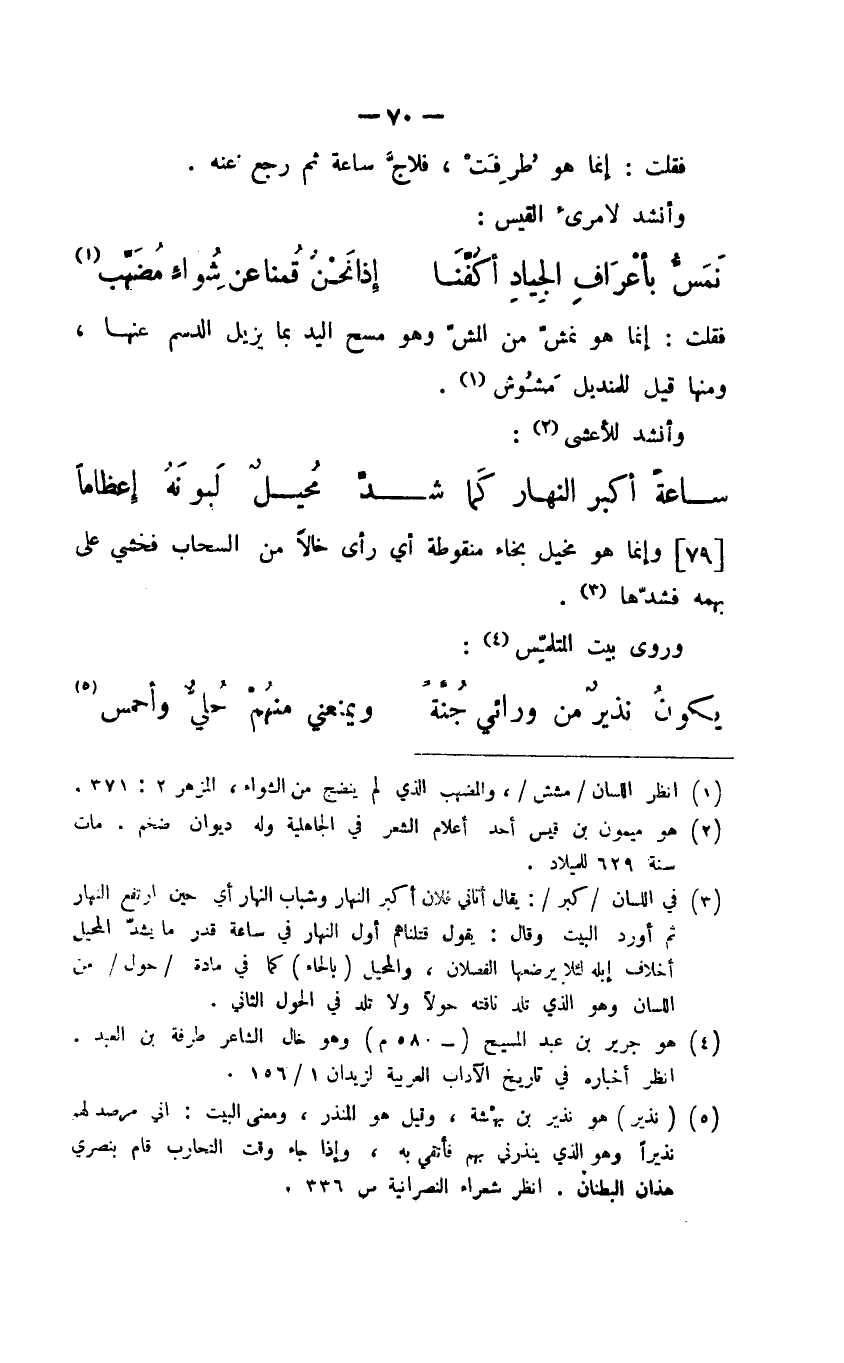 — ٧٠ —
فقلت : إنما هو طُرِفَتْ ، فلاجَّ ساعة ثم رجع عنه .
وأنشد لامرىء القيس :
نَمَسُّ بأَعْرَافِ الجِيادِ أكُفَّنَا إذا نَحْنُ قُمنا عن شُِواءٍ مُضَهَّبِ (١)
فقلت : إنما هو نمشّ من المشّ وهو مسح اليد بما يزيل الدسم عنها ،
ومنها قيل للمنديل مَشُوش (١) .
وأنشد للأعشى (٢) :
ساعةً أكبر النهار كَما شدَّ مُحيلٌ لَبونَهُ إعظاماً
[٧٩] وإنما هو مخيل بخاء منقوطة أي رأى خالاً من السحاب فخشي على
بهمه فشدّها (٣) .
وروى بيت المتلمّس (٤) :
يكونُ نذيرٌ من ورائي جُنَّةً ويمنعني منهُمْ حُليٌّ وأحمس (٥)
(١) انظر اللسان / مشش / ، والمضهب الذي لم ينضج من الشواء ، المزهر ٢ : ٣٧١ .
(٢) هو ميمون بن قيس أحد أعلام الشعر في الجاهلية وله ديوان ضخم . مات
سنة ٦٢٩ للميلاد .
(٣) في اللسان / كبر / : يقال أتاني فلان أكبر النهار وشباب النهار أي حين ارتفع النهار
ثم أورد البيت وقال : يقول قتلناهم أول النهار في ساعة قدر ما يشدّ المحيل
أخلاف إبله لئلا يرضعها الفصلان ، والمحيل ( بالحاء ) كما في مادة / حول / من
اللسان وهو الذي تلد ناقته حولاً ولا تلد في الحول الثاني .
(٤) هو جرير بن عبد المسيح ( ـ ٥٨٠ م ) وهو خال الشاعر طرفة بن العبد .
انظر أخباره في تاريخ الآداب العربية لزيدان ١ / ١٥٦ .
(٥) ( نذير ) هو نذير بن بهْثة ، وقيل هو المنذر ، ومعنى البيت : اني مرصد لهم
نذيراً وهو الذي ينذرني بهم فأتقي به ، وإذا جاء وقت التحارب قام بنصري
هذان البطنان . انظر شعراء النصرانية س ٣٣٦ .